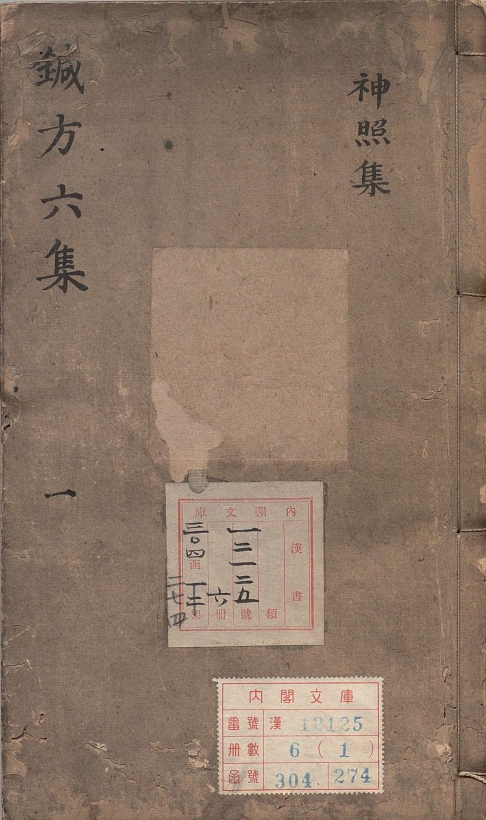 神照集
鍼方六集
一
内閣文庫
漢書
類
一二一二五
號
六
冊
三〇四
函
架
二七四
内閣文庫
番號 漢 12125
冊數 6 ( 1 )
函號 304 274